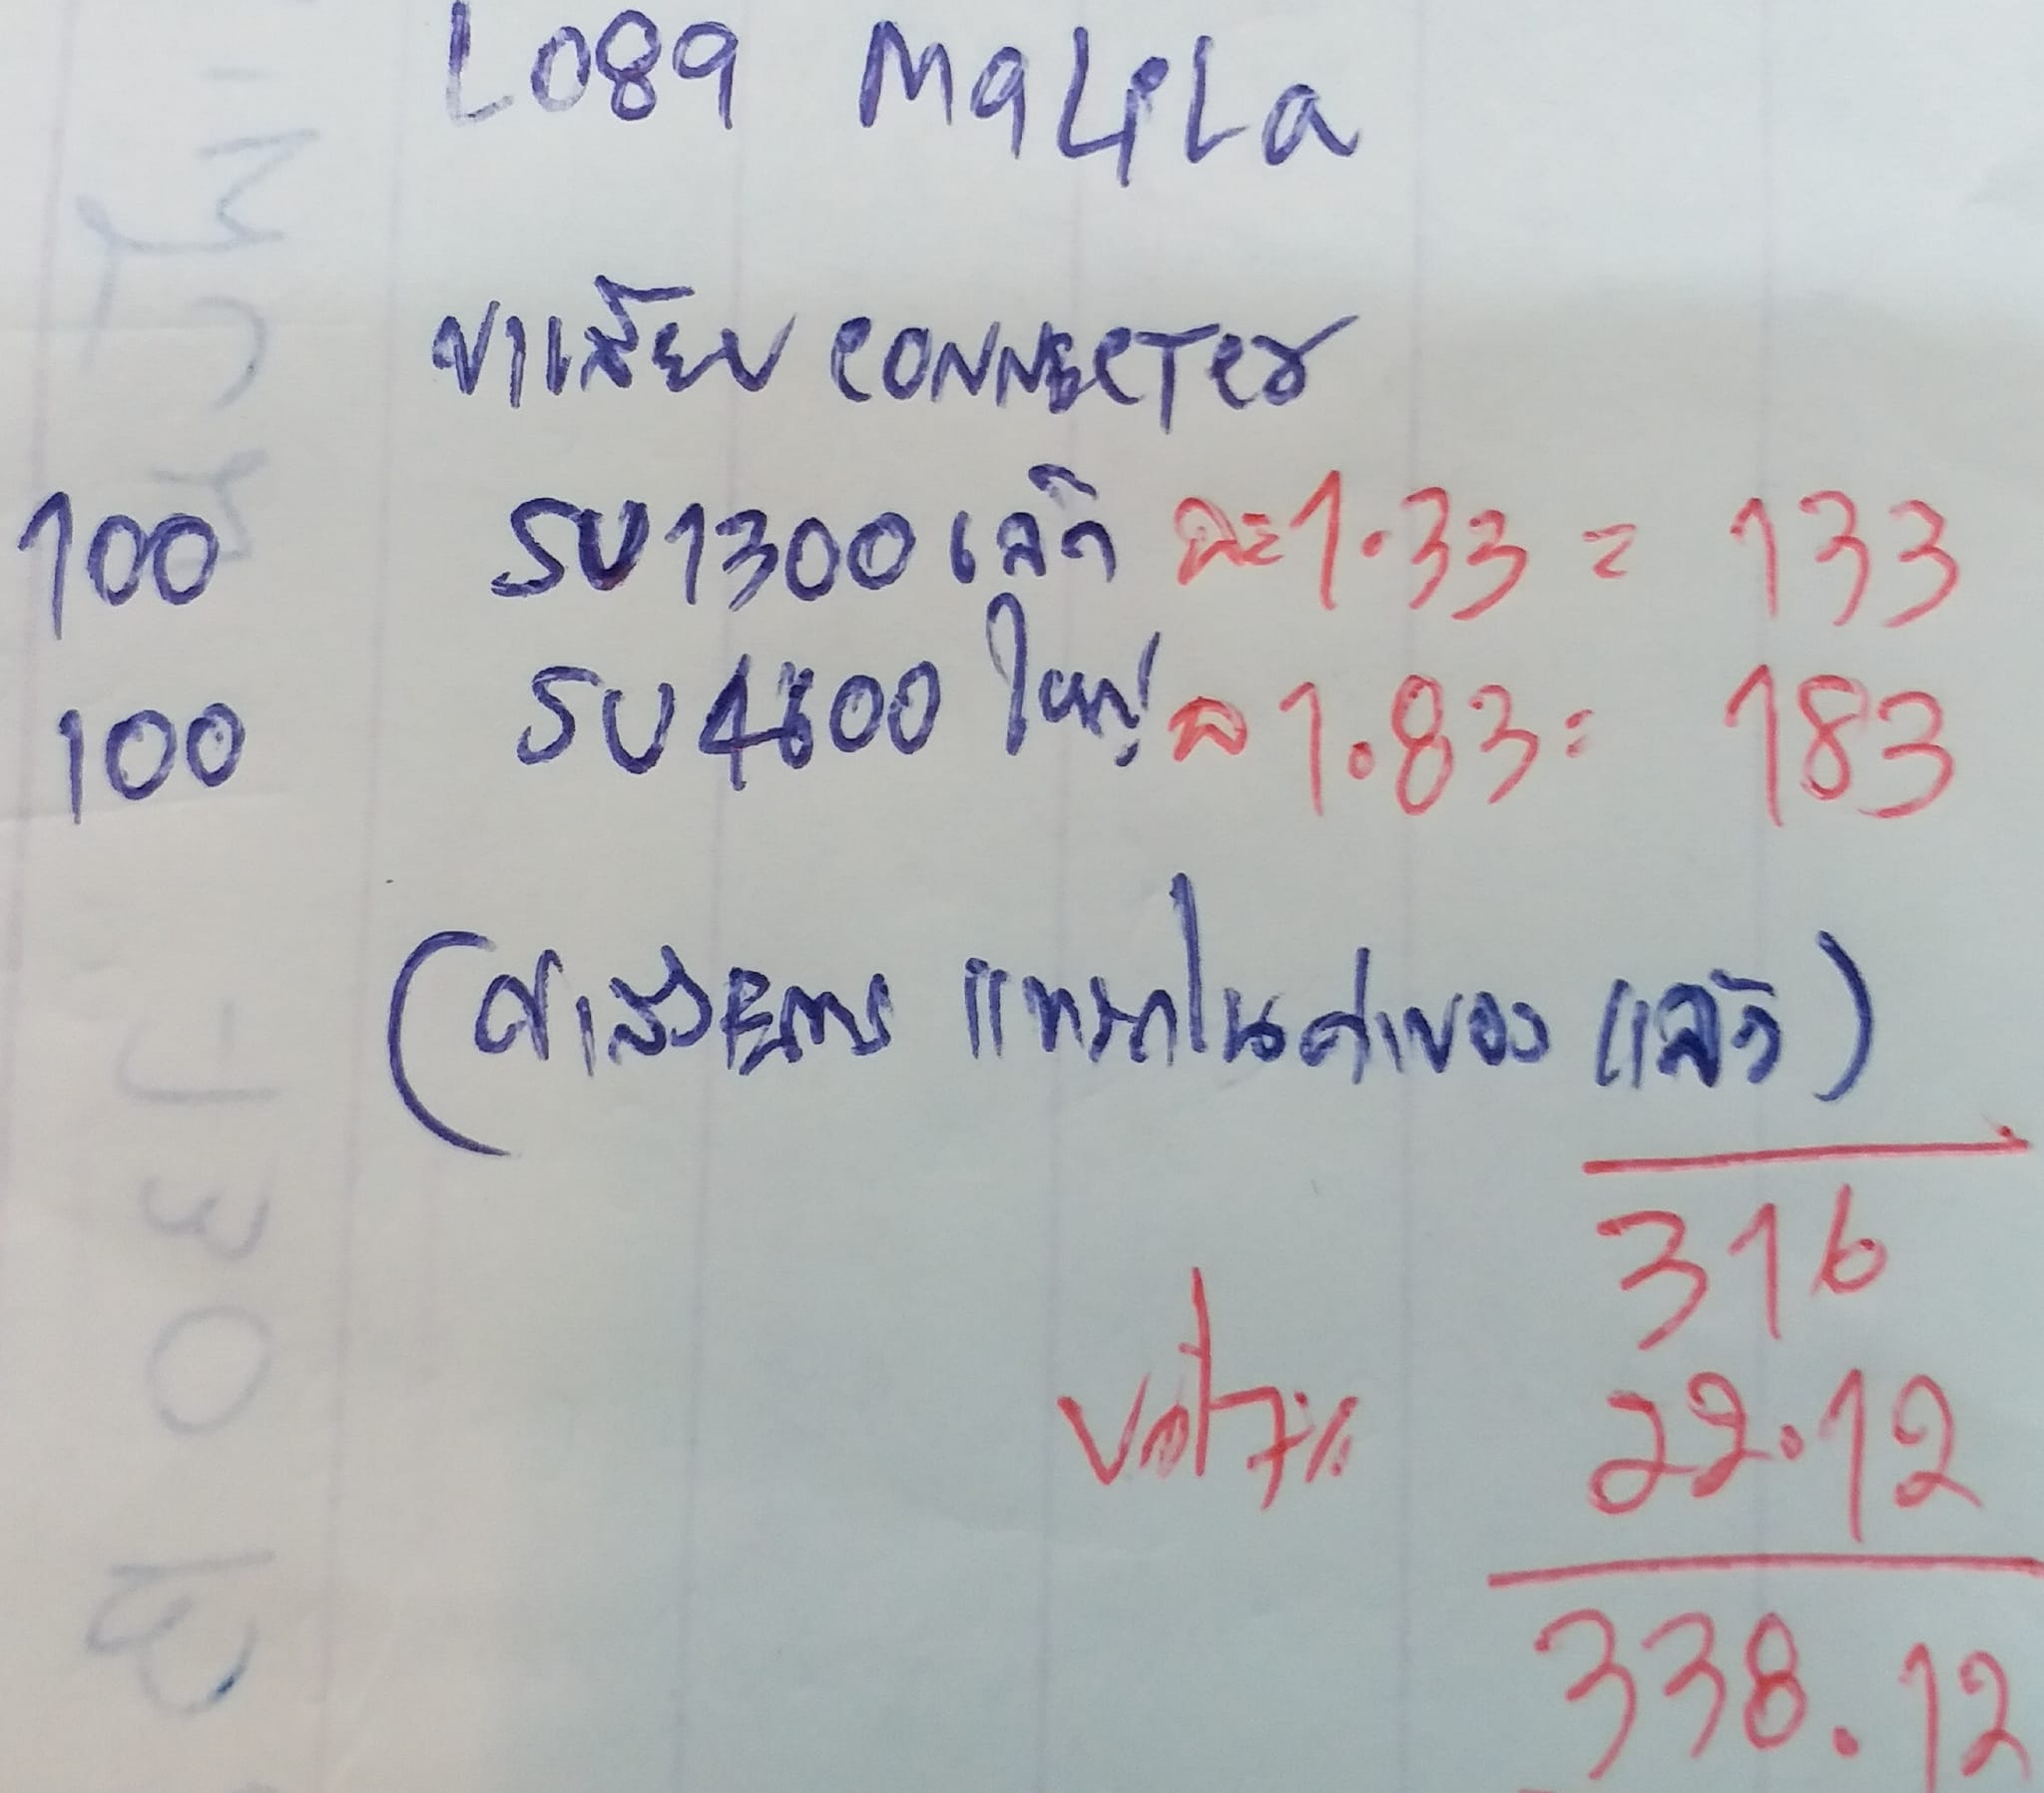 L089 MaLiLa
ขาเสียบ CONNECTER
100 รบ1300 เล็ก ละ 1.33 = 133
100 รบ4800 ใหญ่ ล 1.83 = 183
(ค่าส่งEMS แทรกในค่าของ แล้ว)
316
vat 7% 22.12
338.12